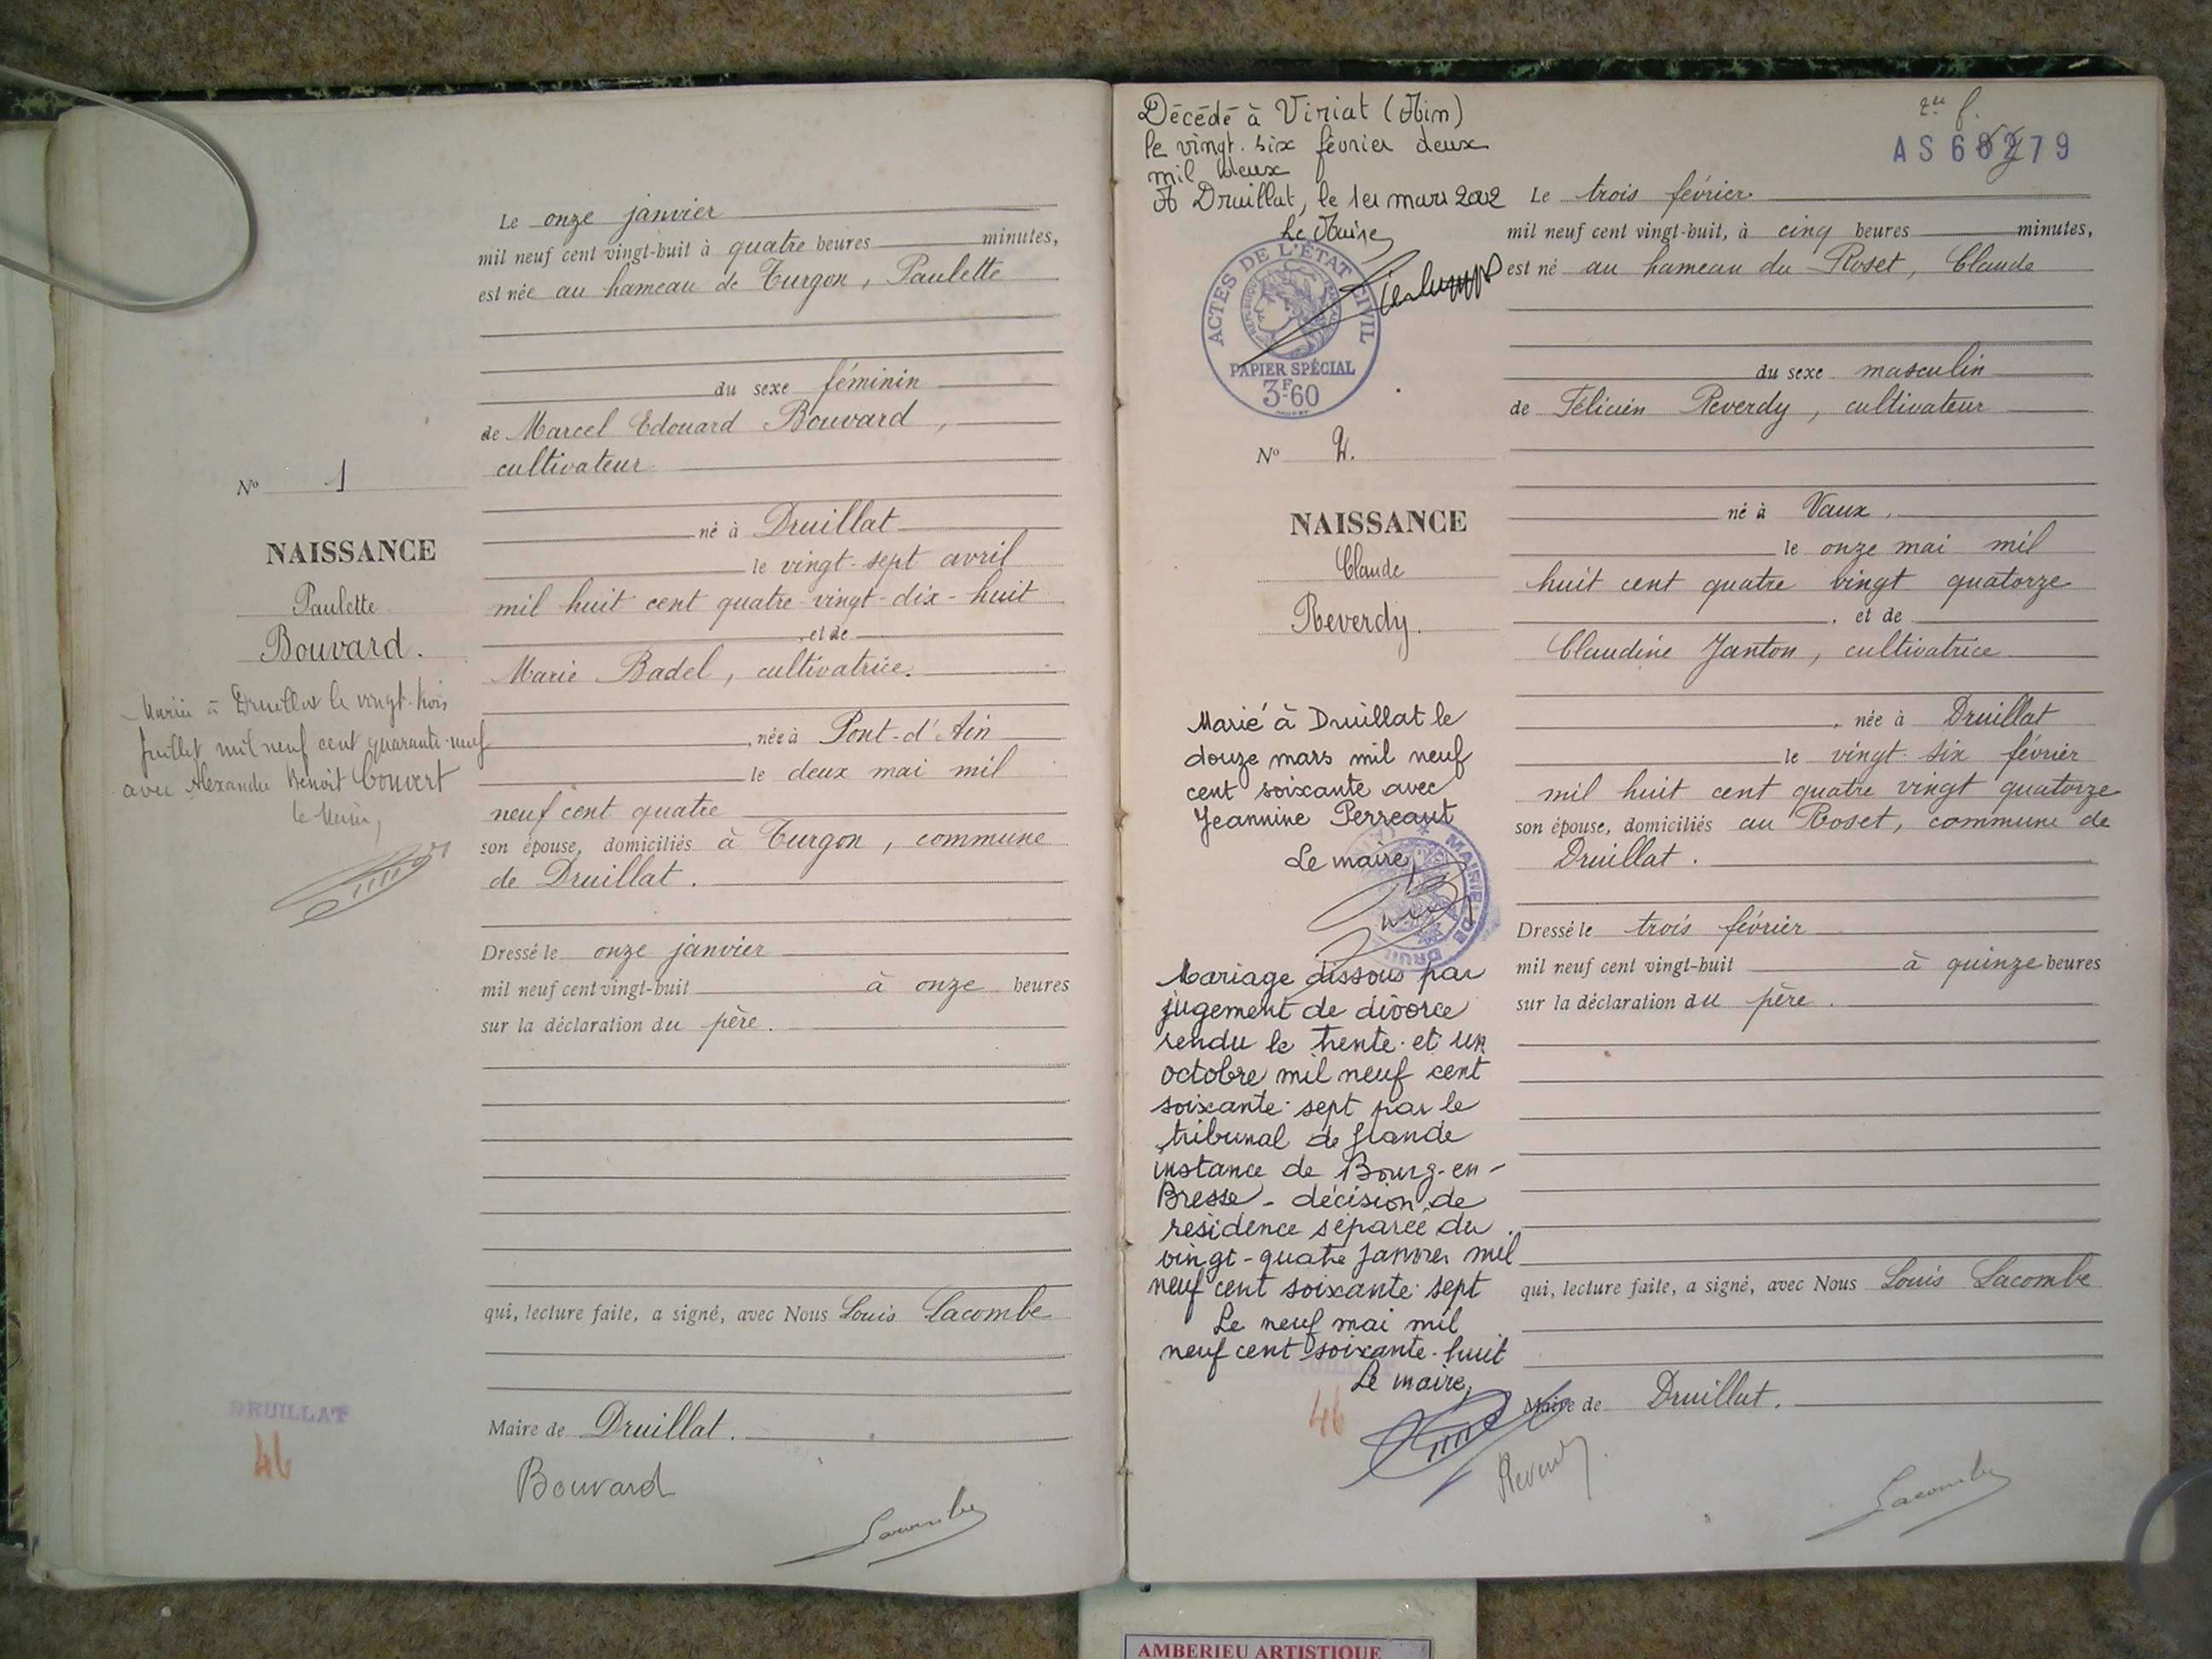 Le onze janvier
mil neuf cent vingt-huit à quatre heures minutes,
est née au hameau de Turgon, Paulette
du sexe féminin
de Marcel Edouard Bouvard,
cultivateur
né à Druillat
le vingt-sept avril
mil huit cent quatre-vingt-dix-huit
, et de
Marie Badel, cultivatrice.
, née à Pont-d'Ain
le deux mai mil
neuf cent quatre
son épouse, domiciliés à Turgon, commune
de Druillat.
Dressé le onze janvier
mil neuf cent vingt-huit à onze heures
sur la déclaration du père.
qui, lecture faite, a signé, avec Nous Louis Lacombe
Maire de Druillat.
Bouvard
Lacombe
No 1
NAISSANCE
Paulette
Bouvard.
Mariée à Druillat le vingt-trois
juillet mil neuf cent quarante-neuf
avec Alexandre Benoit Convert
le Maire,
DRUILLAT
46
Décédé à Viriat (Ain)
le vingt-six février deux
mil deux
A Druillat, le 1er mars 2002
Le Maire,
ACTES DE L'ÉTAT CIVIL
PAPIER SPÉCIAL
3F60
No 2.
NAISSANCE
Claude
Reverdy.
Marié à Druillat le
douze mars mil neuf
cent soixante avec
Jeannine Perreaut
Le maire,
MAIRIE DE DRUIL
Mariage dissous par
jugement de divorce
rendu le trente-et un
octobre mil neuf cent
soixante-sept par le
tribunal de grande
instance de Bourg-en-
Bresse - décision de
résidence séparée du
vingt-quatre janvier mil
neuf cent soixante-sept
Le neuf mai mil
neuf cent soixante-huit
Le maire,
46
2eu f.
AS 68279
Le trois février
mil neuf cent vingt-huit, à cinq heures minutes,
est né au hameau du Roset, Claude
du sexe masculin
de Félicien Reverdy, cultivateur
né à Vaux,
le onze mai mil
huit cent quatre vingt quatorze
, et de
Claudine Janton, cultivatrice
, née à Druillat
le vingt-six février
mil huit cent quatre vingt quatorze
son épouse, domiciliés au Roset, commune de
Druillat.
Dressé le trois février
mil neuf cent vingt-huit à quinze heures
sur la déclaration du père.
qui, lecture faite, a signé, avec Nous Louis Lacombe
Maire de Druillat.
Reverdy
Lacombe
AMBERIEU ARTISTIQUE